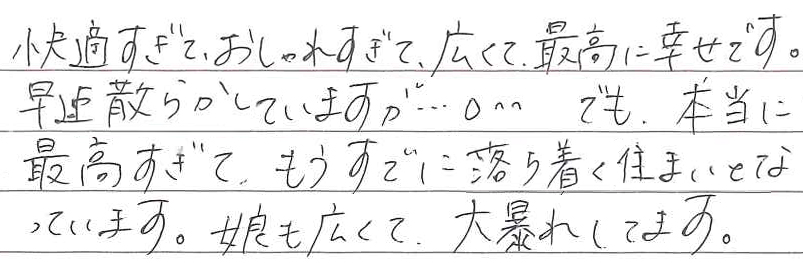 快適すぎて、おしゃれすぎて、広くて、最高に幸せです。
早速散らかしていますが…。^^ でも、本当に
最高すぎて、もうすでに落ち着く住まいとな
っています。娘も広くて、大暴れしてます。